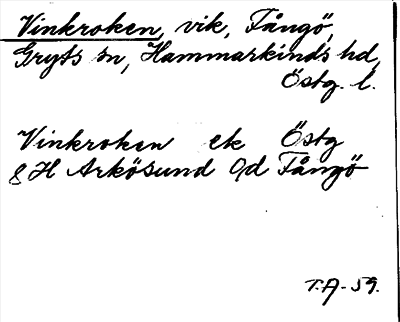 Vinkroken, vik, Fångö,
Gryts sn, Hammarkinds hd,
Östg. l.
Vinkroken ek Östg
8H Arkösund Öd Fångö
T.A-59.